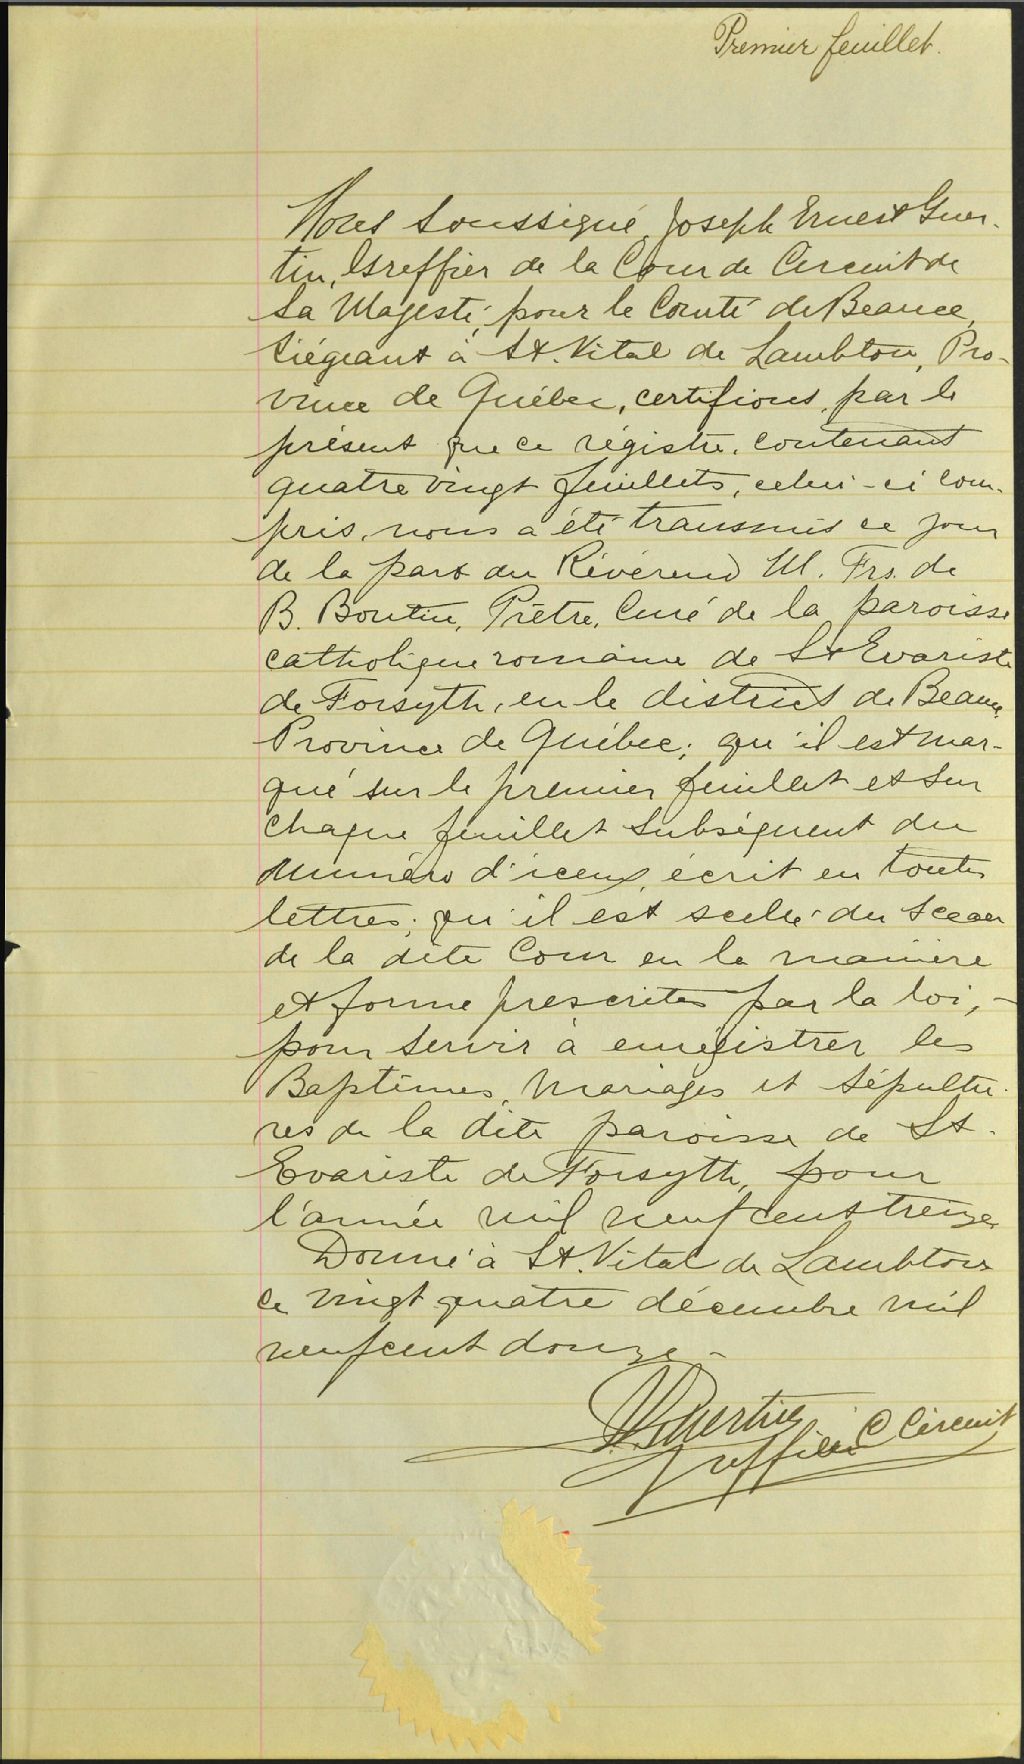 Premier feuillet.
Nous soussigné, Joseph Ernest Guer-
tin, Greffier de la Cour de Circuit de
Sa Majesté, pour le Comté de Beauce,
Siégeant à St. Vital de Lambton, Pro-
vince de Québec, certifions, par le
présent que ce régistre, contenant
quatre vingt feuillets, celui-ci com-
pris, nous a été transmis ce jour
de la part du Révérend M. Frs. de
B. Boutin, Prêtre, Curé de la paroisse
catholique romaine de St Evariste
de Forsyth, en le district de Beauce,
Province de Québec; qu'il est mar-
qué sur le premier feuillet et sur
chaque feuillet subséquent du
numéro d'iceux, écrit en toutes
lettres; qu'il est scellé du sceau
de la dite Cour en la manière
et forme prescrites par la loi, -
pour servir à enrégistrer les
Baptêmes, Mariages et Sépultu-
res de la dite paroisse de St-
Evariste de Forsyth, pour
l'année mil neuf cent treize
Donné à St. Vital de Lambton
ce vingt quatre décembre mil
neuf cent douze -
Guertin
Greffier C Circuit